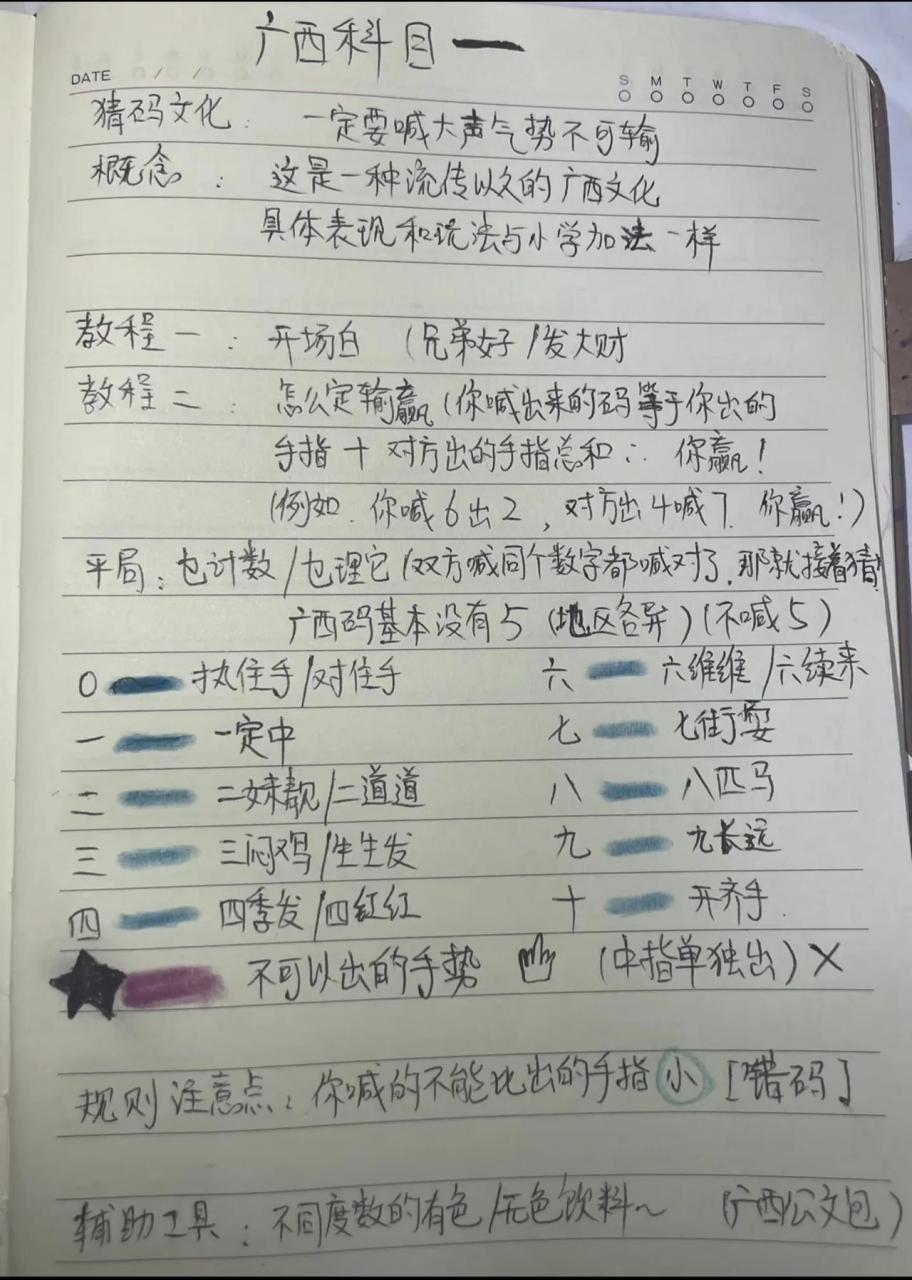 广西科目一
DATE / /
S M T W T F S
猜码文化: 一定要喊大声气势不可输
概念: 这是一种流传以久的广西文化
具体表现和玩法与小学加法一样
教程一: 开场白 (兄弟好/发大财
教程二: 怎么定输赢(你喊出来的码等于你出的
手指十对方出的手指总和∴ 你赢!
(例如.你喊6出2,对方出4喊7.你赢!)
平局:也计数/也理它(双方喊同个数字都喊对了.那就接着猜!
广西码基本没有5(地区各异)(不喊5)
0 执住手/对住手 六 六维维/六续来
一 一定中 七 七街耍
二 二妹靓/二道道 八 八匹马
三 三闷鸡/生生发 九 九长远
四 四季发/四红红 十 开齐手.
不可以出的手势 (中指单独出)×
规则注意点:你喊的不能比出的手指小 [错码]
辅助工具:不同度数的有色/无色饮料~ (广西公文包)